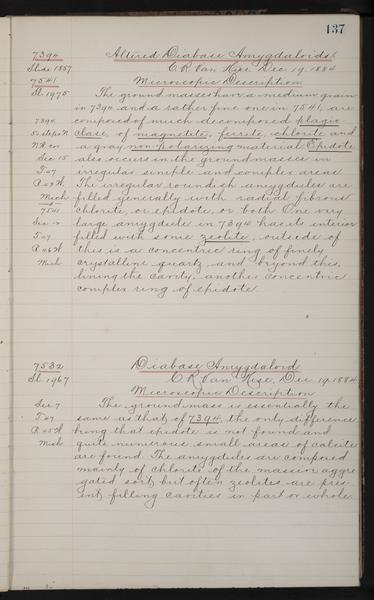 137
7394 Altered Diabase Amygdaloids.
Slide 1857 C. R. Van Hise, Dec. 19, 1884
7541 Microscopic Description
Sl. 1975 The groundmasses have a medium grain
in 7394 and a rather fine one in 7541, are
7394 composed of much decomposed plagio-
clase, of magnetite, ferrite, chlorite and
a gray non-polarizing material. Epidote
Sec 15 also occurs in the groundmasses in
T 47 irregular simple and complex areas.
The irregular roundish amygdules are
Mich filled generally with radial fibrous
7541 chlorite, or epidote, or both. One very
large amygdule in 7394 has its interior
T 47 filled with some zeolite, outside of
R 46 W this is a concentric ring of finely
Mich crystalline quartz, and beyond this,
lining the cavity, another concentric
complex ring of epidote.
7532 Diabase Amygdaloid
Sl. 1967 C. R. Van Hise, Dec. 19, 1884
Microscopic Description
Sec 7 The groundmass is essentially the
T 47 same as that of 7394, the only difference
being that epidote is not found and
Mich quite numerous small areas of calcite
are found. The amygdules are composed
mainly of chlorite of the massive aggre
gated sort, but often zeolites are pres
ent, filling cavities in part or whole.